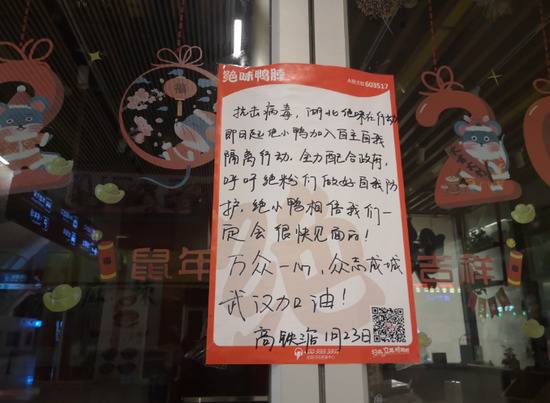 绝味鸭脖
A股代码 603517
抗击病毒，湖北绝味在行动
即日起绝小鸭加入自主自我
隔离行动，全力配合政府，
呼吁绝粉们做好自我防
护，绝小鸭相信我们一
定会很快见面的！
万众一心，众志成城
武汉加油！
高铁店 1月23日
鼠年
吉祥
福
2
0
2